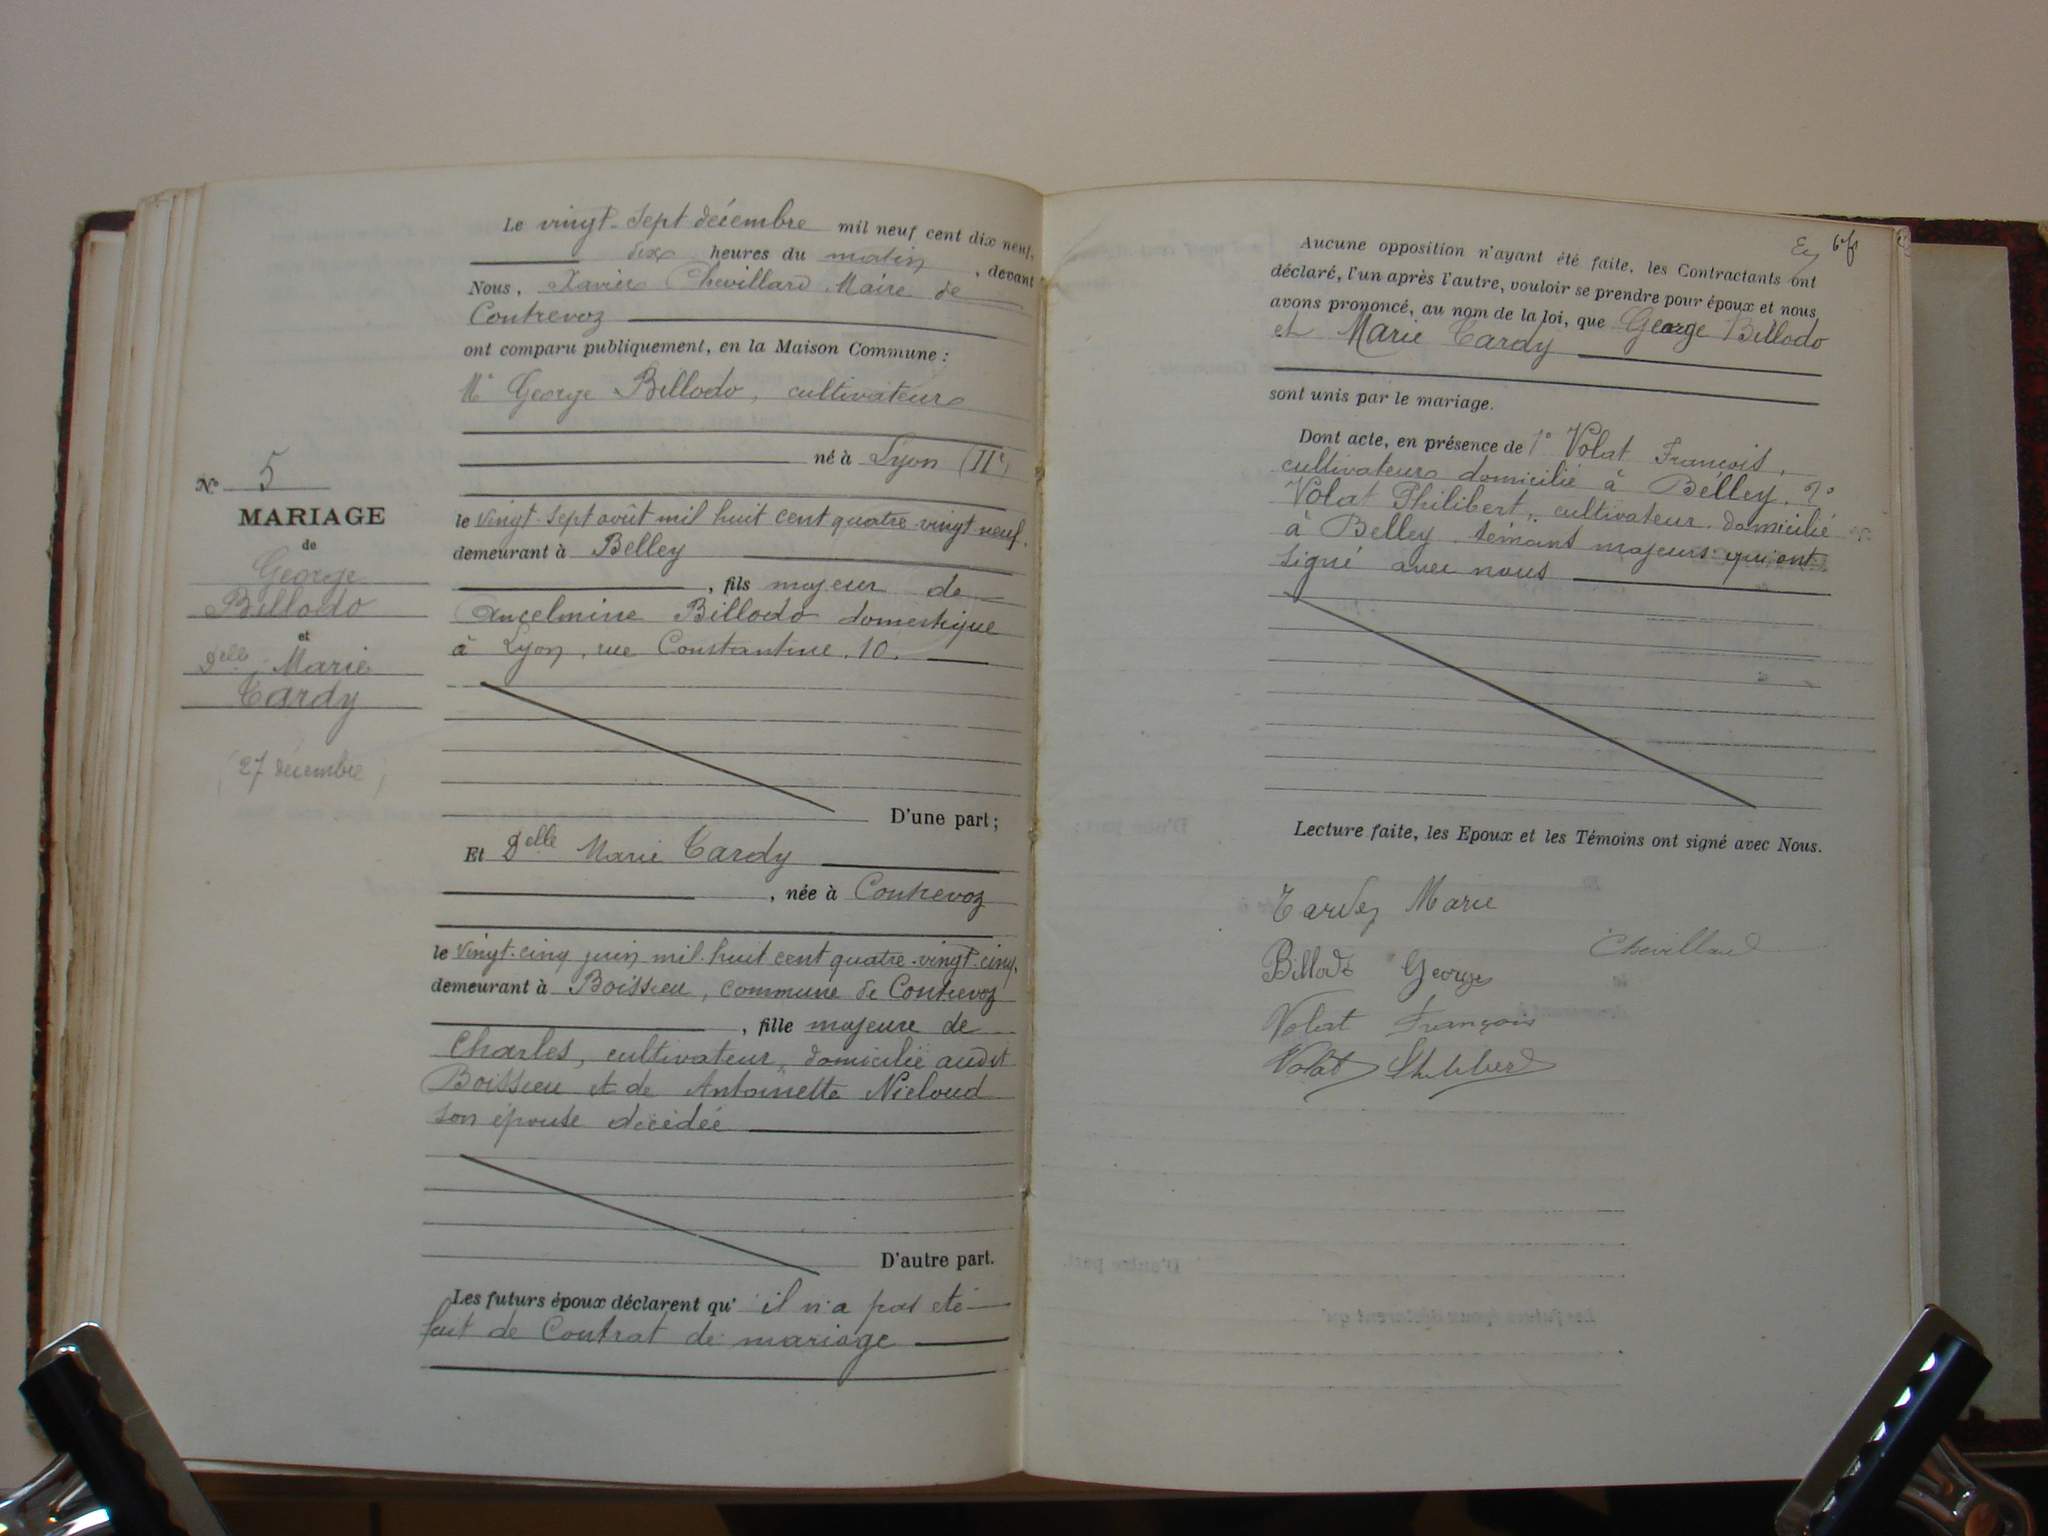 Le vingt-sept décembre mil neuf cent dix neuf,
dix heures du matin, devant
Nous, Xavier Chevillard Maire de
Contrevoz
ont comparu publiquement, en la Maison Commune :
Mr George Billodo, cultivateur
né à Lyon (IIe)
le vingt-sept août mil huit cent quatre-vingt-neuf.
demeurant à Belley
, fils majeur de
Ancelmine Billodo domestique
à Lyon, rue Constantine, 10.
D'une part ;
Et Delle Marie Tardy
, née à Contrevoz
le vingt-cinq juin mil huit cent quatre-vingt-cinq,
demeurant à Boissieu, commune de Contrevoz
, fille majeure de
Charles, cultivateur, domicilié audit
Boissieu et de Antoinette Nicloud
son épouse décédée
D'autre part.
Les futurs époux déclarent qu' il n'a pas été
fait de Contrat de mariage
No 5
MARIAGE
de
George
Billodo
et
Delle Marie
Tardy
(27 décembre)
Aucune opposition n'ayant été faite, les Contractants ont
déclaré, l'un après l'autre, vouloir se prendre pour époux et nous
avons prononcé, au nom de la loi, que George Billodo
et Marie Tardy
sont unis par le mariage.
Dont acte, en présence de 1° Volat François,
cultivateur domicilié à Belley, 2°
Volat Philibert, cultivateur, domicilié
à Belley témoins majeurs qui ont
signé avec nous
Lecture faite, les Epoux et les Témoins ont signé avec Nous.
Tardy Marie
Chevillard
Billodo George
Volat François
Volat Philibert